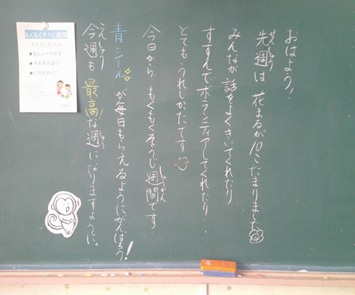 おはよう!
先週は花まるが10こたまりました
みんなが話をよくきいてくれたり
すすんでボランティアしてくれたり!
とてもうれしかったです
今日からもくもくそうじ週間です
青シールが毎日もらえるようにがんばろう!
今週も最高な週になりますように。
もくもくそうじ週間